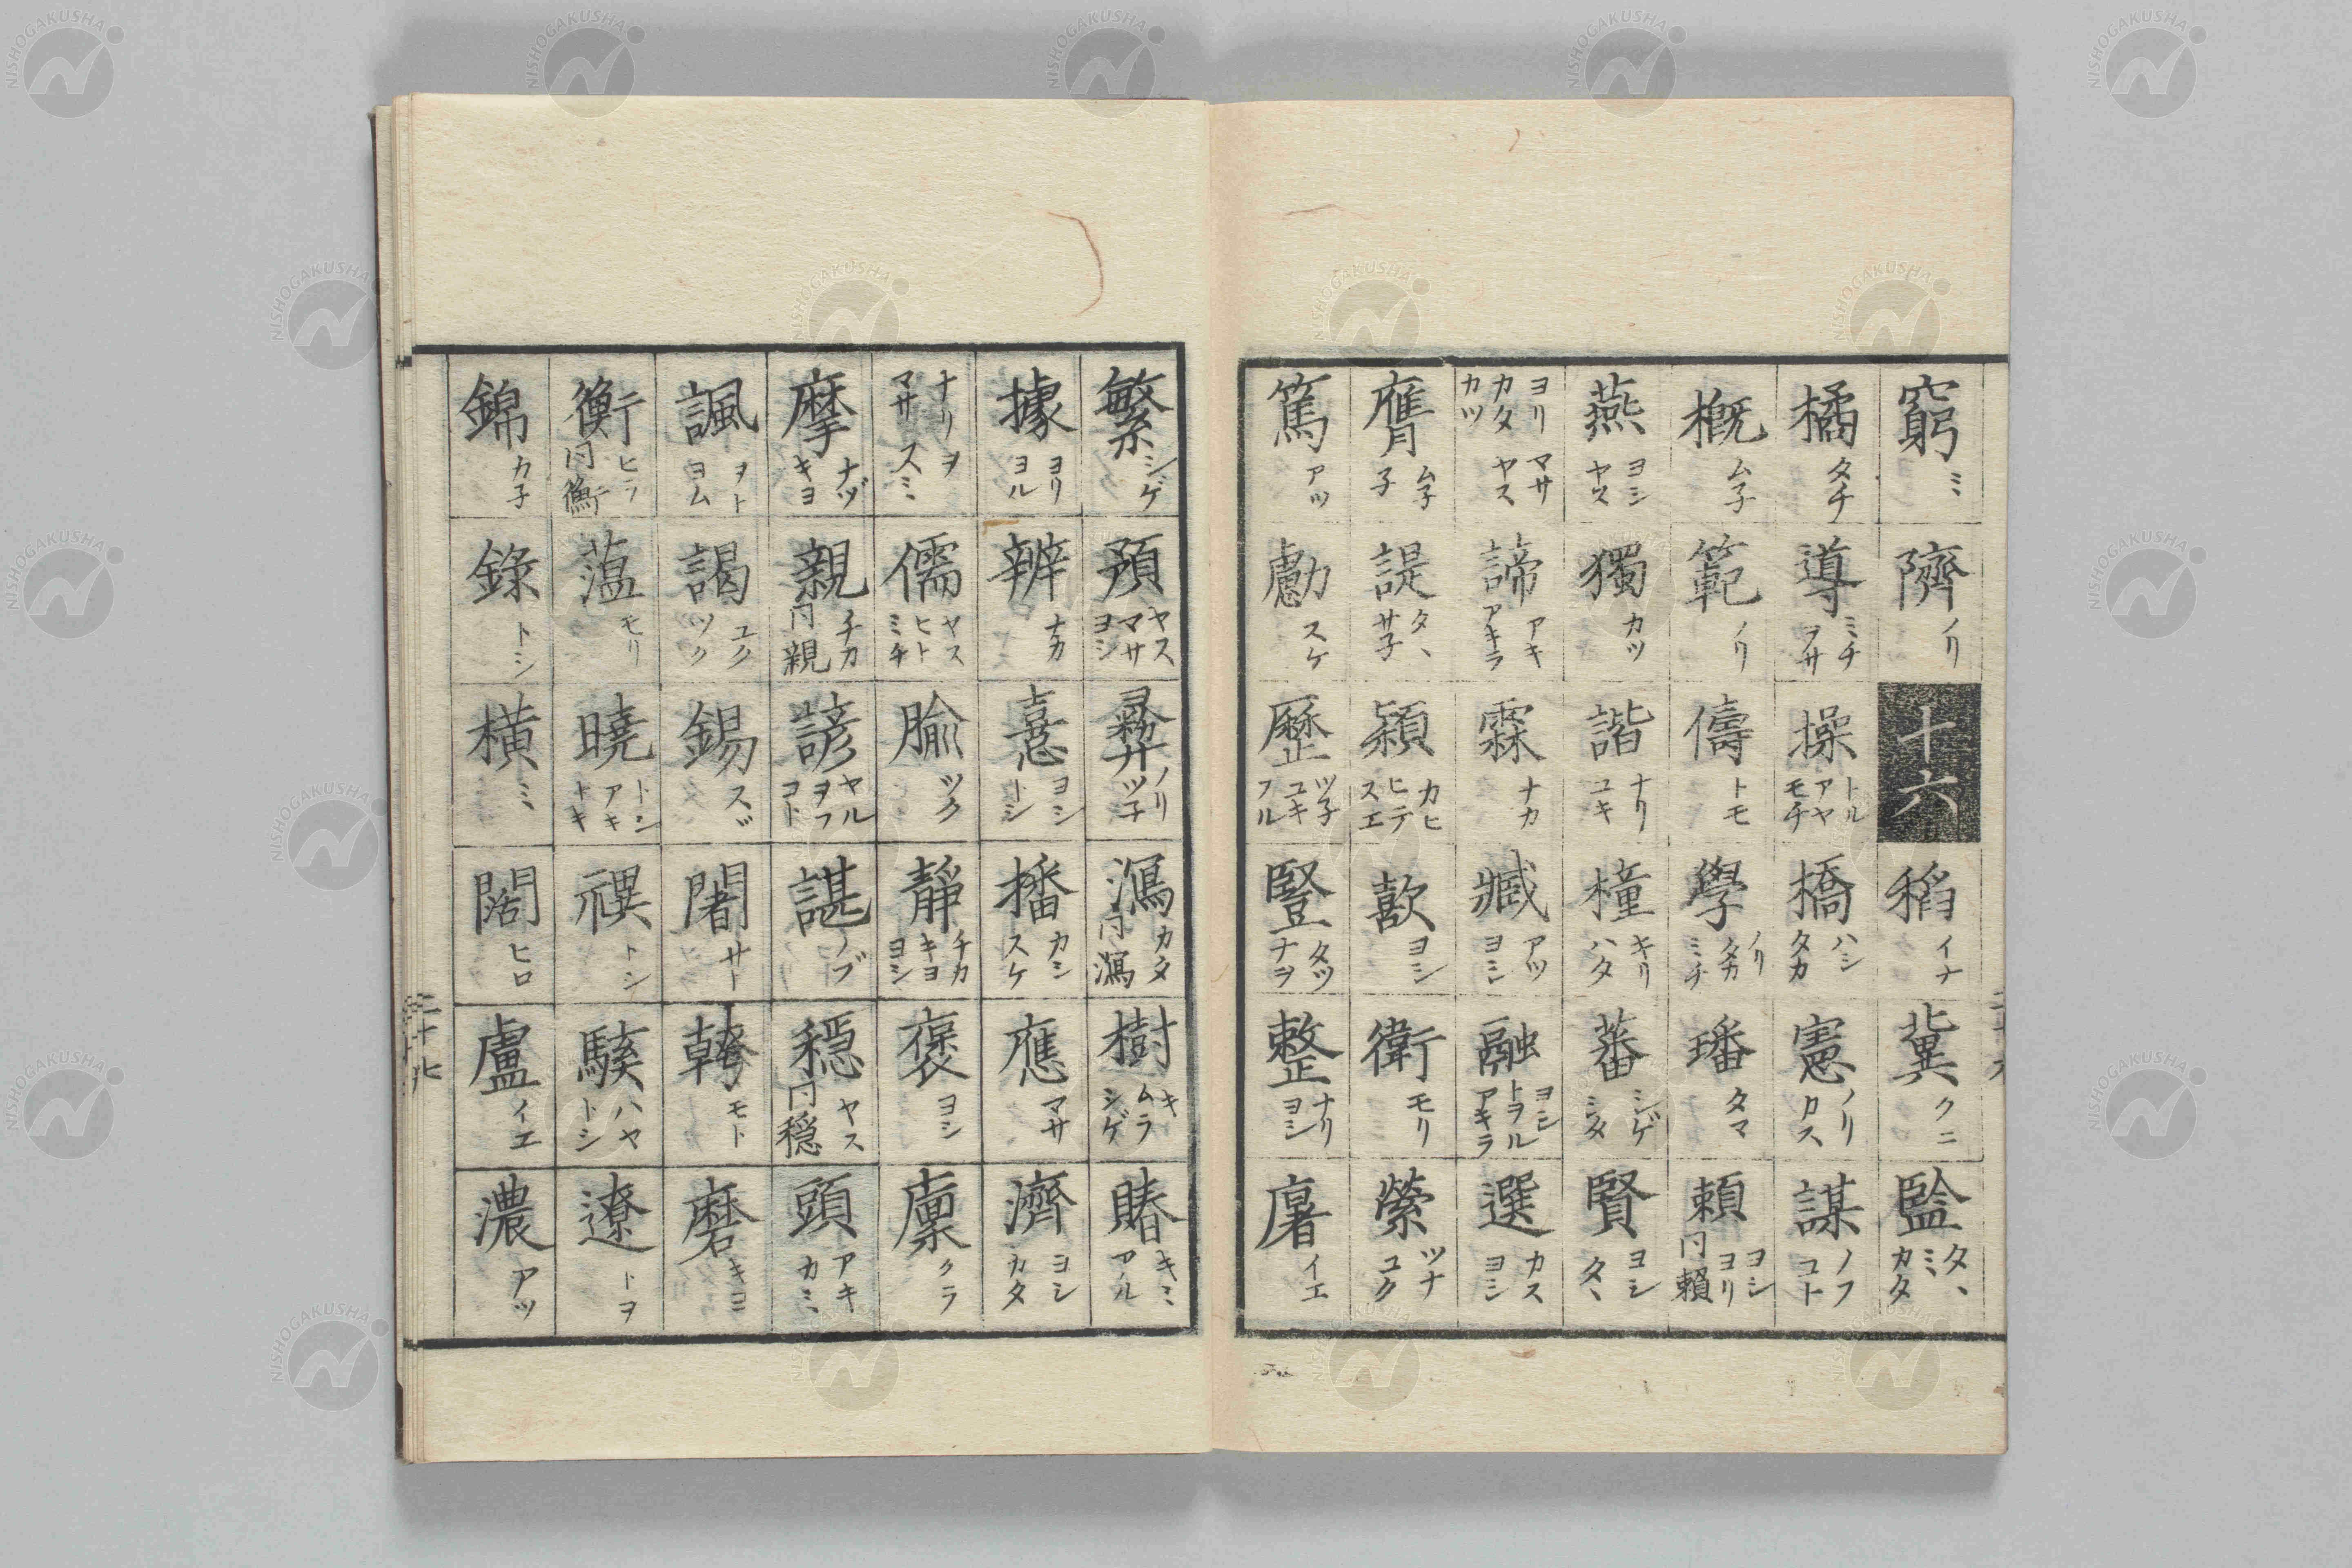 窮 ミ 隮 ノリ 十六 稻 イナ 冀 クニ 監 タヽ ミ カタ
橘 タチ 導 ミチ ヲサ 操 トル アヤ モチ 橋 ハシ タカ 憲 ノリ カス 謀 ノフ コト
概 ム子 範 ノリ 儔 トモ 學 ノリ タカ ミチ 璠 タマ 頼 ヨシ ヨリ 同賴
燕 ヨシ ヤス 獨 カツ 諧 ナリ ユキ 橦 キリ ハタ 蕃 シゲ ミタ 賢 ヨシ タヽ
ヨリ カタ カツ マサ ヤス 諦 アキ アキラ 霖 ナカ 臧 アツ ヨシ 融 ヨシ トヲル アキラ 選 カス ヨシ
膺 ム子 子 諟 タヽ サ子 穎 カヒ ヒテ スエ 歖 ヨシ 衛 モリ 縈 ツナ ユク
篤 アツ 勴 スケ 歷 ツ子 ユキ フル 豎 タツ ナヲ 整 ナリ ヨシ イエ
繁 シゲ 預 ヤス マサ ヨシ 彜 ノリ ツ子 潟 カタ 同瀉 樹 キ ムラ シゲ 賰 キミ アル
據 ヨリ ヨル 辨 ナカ 憙 ヨシ トシ 播 カシ スケ 應 マサ 濟 ヨシ カタ
ナリ マサ ヲ スミ 儒 ヤス ヒト ミチ 腧 ツク 靜 チカ キヨ ヨシ 褒 ヨシ 廩 クラ
摩 ナヅ キヨ 親 チカ 同親 諺 ヤル ヲフ コト 諶 ノブ 穏 ヤス 同穏 頭 アキ カミ
諷 ヲト ヨム 謁 ユク ツク 錫 スヾ 闍 サト モト 磨 キヨ
衡 ヒラ 同衡 薀 モリ 曉 トシ アキ トキ 禩 トシ 騃 ハヤ トシ 遼 トヲ
錦 カ子 錄 トシ 橫 ミ 闊 ヒロ 盧 イエ 濃 アツ
二十九
NISHOGAKUSHA